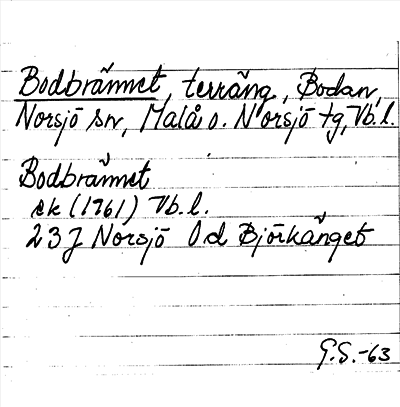 Bodbrännet, terräng, Bodan,
Norsjö sn, Malå o. Norsjö tg, Vb.l.
Bodbrännet
ek (1961) Vb.l.
23J Norsjö 0d Björkänget
G.S.-63